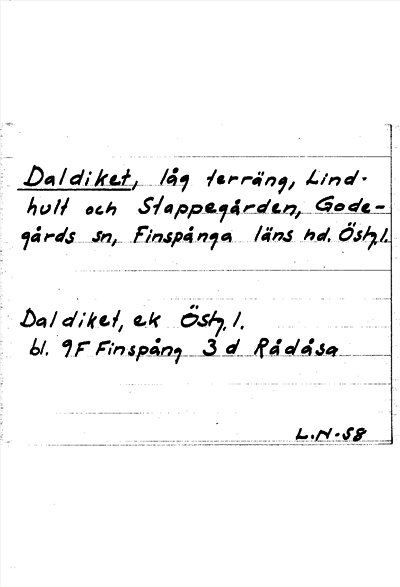 Daldiket, låg terräng, Lind-
hult och Stappegården, Gode-
gårds sn, Finspånga läns hd. Östg.l.
Daldiket, ek Östg.l.
bl. 9F Finspång 3 d Rådåsa
L.N-58